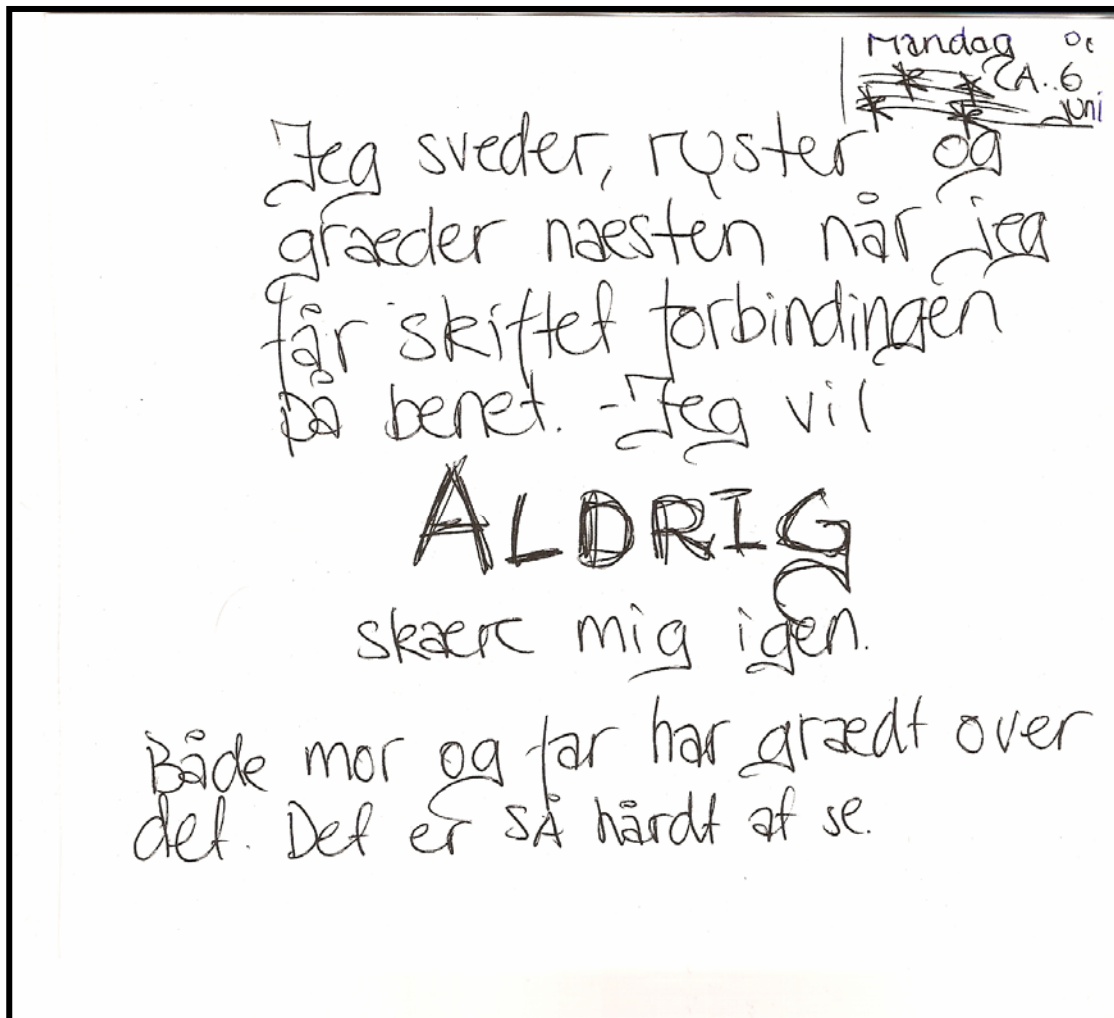 Mandag
CA. 6
juni
Jeg sveder, ryster og
græder næsten når jeg
får skiftet forbindingen
på benet. - Jeg vil
ALDRIG
skære mig igen.
Både mor og far har grædt over
det. Det er SÅ hårdt at se.